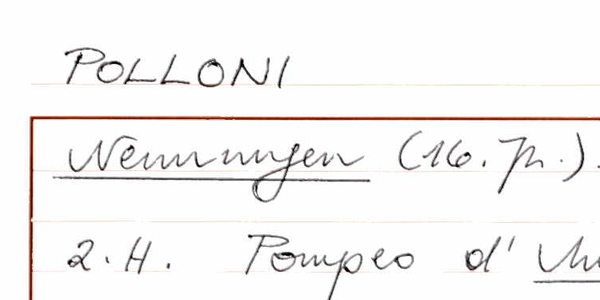 POLLONI
Nennungen (16. Jh.).
2. H. Pompeo d'